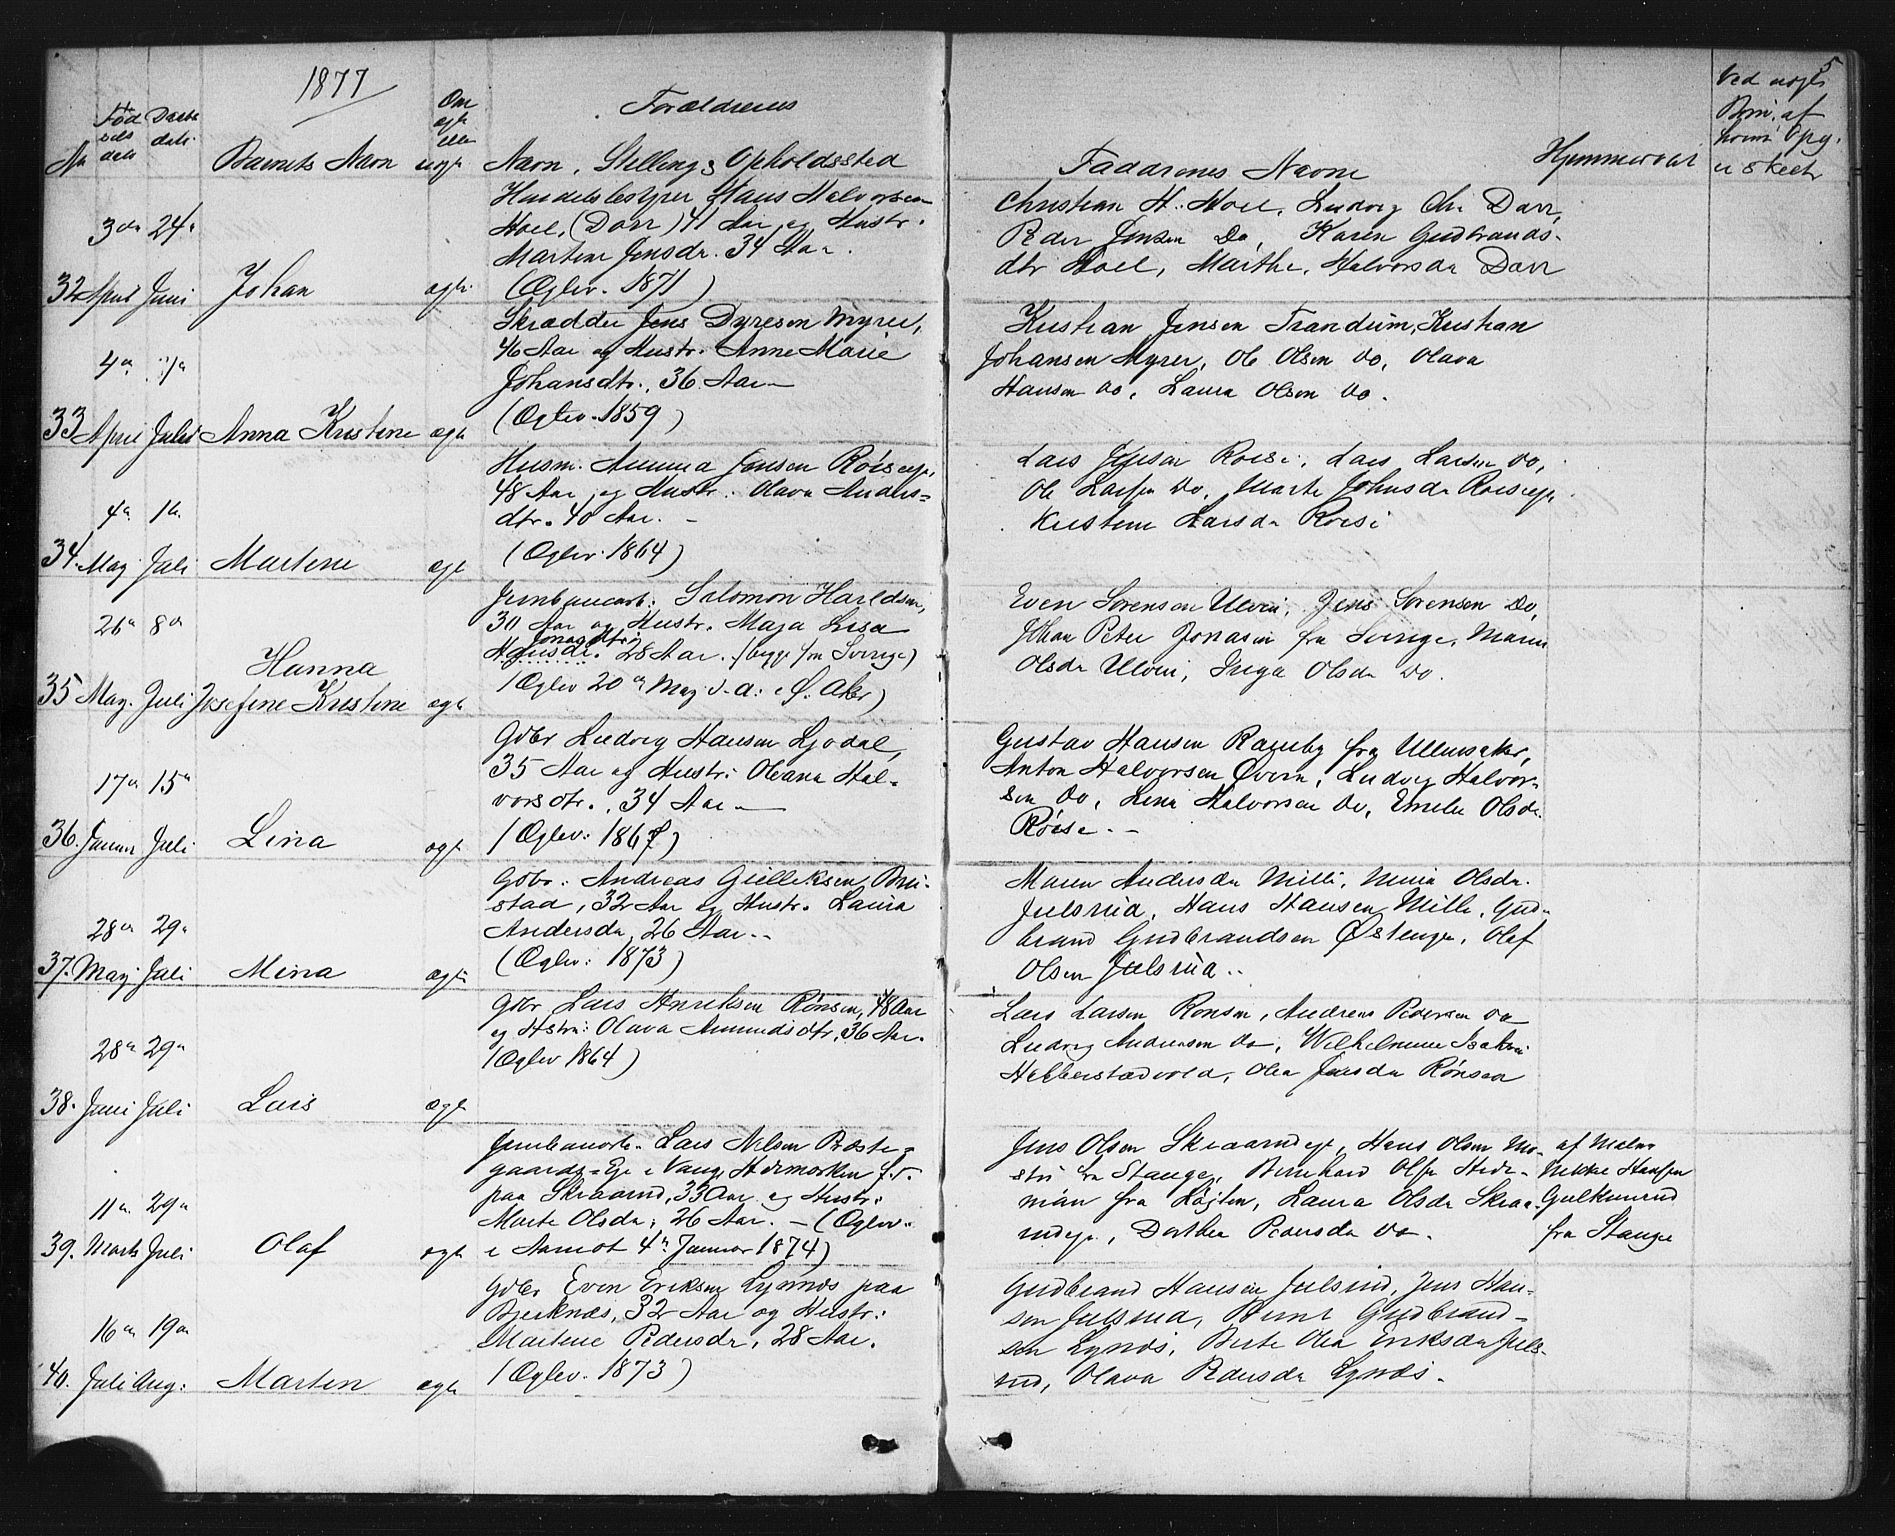 1877
5
No
Fødselsdato
Daabsdato
Barnets Navn
Om ægte eller uægte
Forældrenes
Navn, Stilling & Opholdssted
Faddrenes Navne
Hjemmedøbt
Ved nogle
32
3die April
24de Juni
Johan
ægte
Handelsbestyrer Hans Halvorsen
Hoel, (Dorr) 41 Aar og Hustr.
Martine Jensdr. 34 Aar.
(Ægtev. 1871)
Christian H. Hoel, Ludvig Chr. Dorr,
Peder Jensen Do, Karen Gudbrands-
dtr Hoel, Marthe Halvorsdr Dorr
33
4de April
Juli
Anna Kristine
ægte
Skrædder Jens Dyresen Myrer,
46 Aar og Hustr. Anne Marie
Johansdtr., 36 Aar
(Ægtev. 1859)
Kristian Jensen Trandum, Kristian
Johansen Myrer, Ole Olsen do, Olava
Hansen do, Laura Olsen do.
34.
4de May
1ste Juli
Martine
ægte
Husm. Jensen
48 Aar, og Hustr. Olava Anders-
dtr. 40 Aar. -
(Ægtev. 1864)
Lars Roise, Lars Larsen do,
Ole Larsen do, Marte Johnsdr
Kristine Larsdr Roise
35
26de May.
8de Juli
Hanna
Josefine Kristine
ægte
Jernbanearb. Salomon Harldsen,
30 Aar og Hustr. Maja Lisa
Jonasdtr.
Hansdr. 28 Aar. (begge fra Sverige)
(Ægtev 20de May d. A. i Ø. Aker)
Even Sørensen Ulvin, Jens Sørensen Do,
Johan Peter Jonasen fra Sverige, Maren
Olsdr Ulvin, Inga Olsdr do.
36.
17de Januar
15de Juli
Lina
ægte
Gdbr Ludvig Hansen Ljødal,
35 Aar og Hustr: Oleana Hal-
vorsdtr., 34 Aar -
Gustav Hansen Raneby fra Ullensaker,
Anton Halvorsen Øvern, Ludvig Halvor-
sen do, Lina Halvorsen do, Emelie Olsdr
Röise. -
37.
28de May
29de Juli
Mina
ægte
Gdbr. Andreas Gulliksen Bru-
stad, 32 Aar og Hustr. Laura
Andersdr, 26 Aar. -
(Ægtev: 1873)
Maren Andersdr Milli, Olsdr.
Julsrud, Hans Hansen Milli, Gud-
brand Gudbrandsen Østenge, Olaf
Olsen Julsrud.
38.
28de Juni
29de Juli
Lars
ægte
Gdbr Lars Henriksen Rønsen, 48 Aar
og Hstru: Olava Amundsdtr, 36 Aar.
(Ægtev 1864)
Lars Larsen Rønsen, Andreas Pedersen do
Ludvig Andersen do, Wilhelmine
Olea Jensdr Rønsen
39.
11te Marts
29de Juli
Olaf
ægte
Jernbanearb. Lars Nilsen Præste-
gaards-Eje i Vang, Hedemarken f. T.
paa Skraarud, 33 Aar og Hustr:
Marte Olsdr, 26 Aar. - (Ægtev.
i Aamot 4de Januar 1874)
Jens Olsen, Hans Olsen Mo-
stu fra Stange, Bernhard Olsen Hede-
man fra Løjten, Laura Olsdr Skraa-
rudeje, Dorthea Pedersdr do.
af
Mikke Hansen
Gulkerud
fra Stange
40.
16de Juli
19de Aug:
Marten
ægte
Gdbr Even Eriksen Lynæs paa
Bjerknæs, 32 Aar og Hustr:
Martine Pedersdr, 28 Aar.
(Ægtev. 1873)
Gudbrand Hansen Julsrud, Jens Han-
sen Julsrud, Bernt Gudbrand-
sen Lynæs, Berte Olea Eriksdr Juls-
rud, Olava Pedersdr Lynæs.